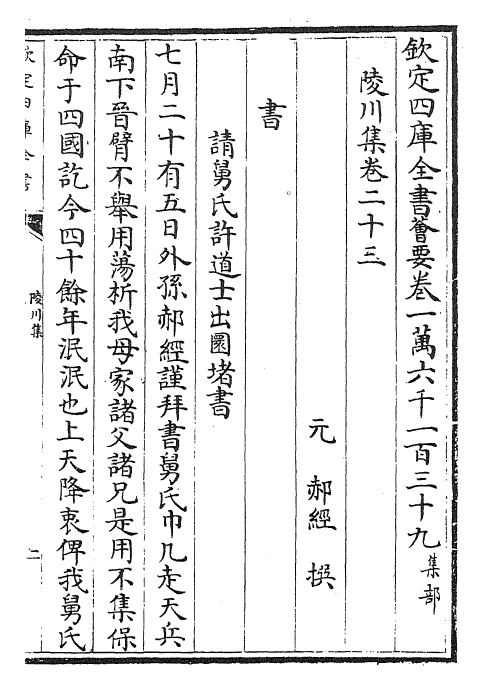 欽定四庫全書薈要卷一萬六千一百三十九集部
陵川集卷二十三
元郝經撰
書
請舅氏許道士出圜堵書
七月二十有五日外孫郝經謹拜書舅氏巾几走天兵
南下晉臂不舉用蕩析我母家諸父諸兄是用不集保
命于四國訖今四十餘年泯泯也上天降衷俾我舅氏
欽定四庫全書
陵川集
二